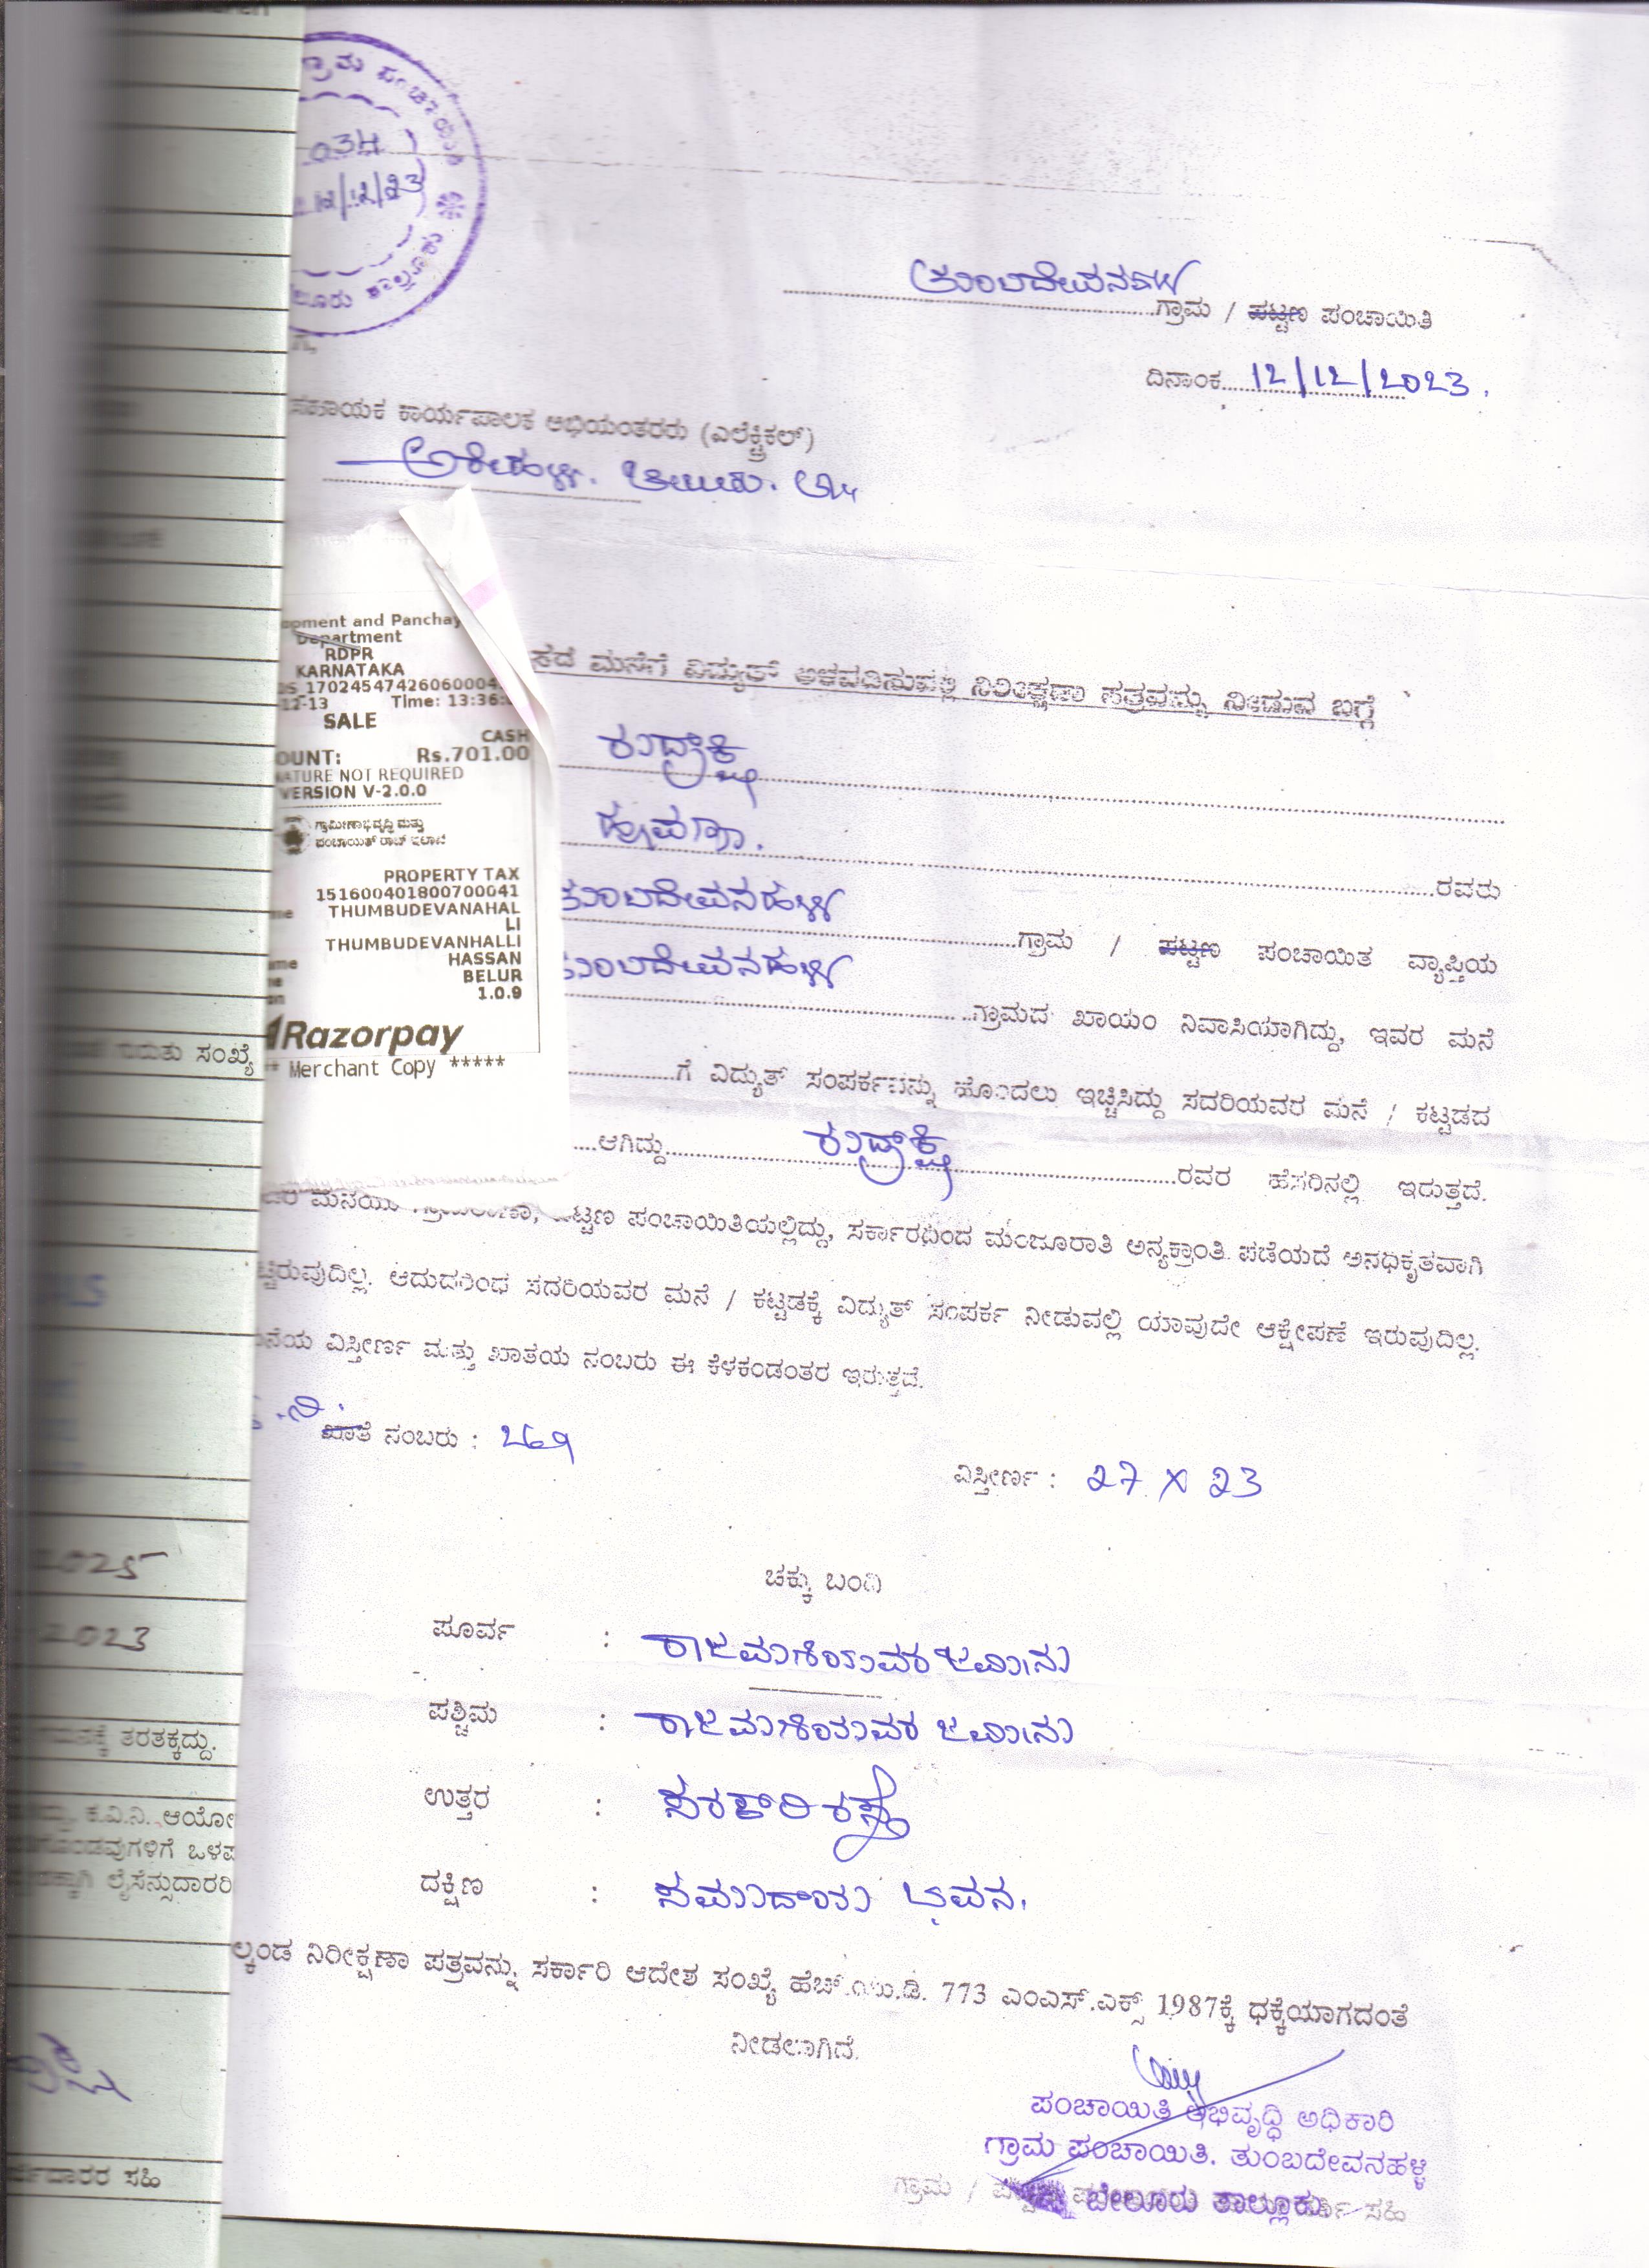 ಗ್ರಾಮ ಪಂಚಾಯಿತಿ
12/12/23
ತಾಲ್ಲೂಕು
ತುಂಬದೇವನಹಳ್ಳಿ
ಗ್ರಾಮ / ಪಟ್ಟಣ ಪಂಚಾಯಿತಿ
ದಿನಾಂಕ 12/12/2023.
ಸಹಾಯಕ ಕಾರ್ಯಪಾಲಕ ಅಭಿಯಂತರರು (ಎಲೆಕ್ಟ್ರಿಕಲ್)
ಮನೆಗೆ ವಿದ್ಯುತ್ ನಿರೀಕ್ಷಣಾ ಪತ್ರವನ್ನು ನೀಡುವ ಬಗ್ಗೆ
ರುದ್ರಾಕ್ಷಿ
ರವರು
ತುಂಬದೇವನಹಳ್ಳಿ ಗ್ರಾಮ / ಪಟ್ಟಣ ಪಂಚಾಯಿತ ವ್ಯಾಪ್ತಿಯ
ತುಂಬದೇವನಹಳ್ಳಿ ಗ್ರಾಮದ ಖಾಯಂ ನಿವಾಸಿಯಾಗಿದ್ದು, ಇವರ ಮನೆ
ಗೆ ವಿದ್ಯುತ್ ಸಂಪರ್ಕವನ್ನು ಹೊಂದಲು ಇಚ್ಚಿಸಿದ್ದು ಸದರಿಯವರ ಮನೆ / ಕಟ್ಟಡದ
ಆಗಿದ್ದು ರುದ್ರಾಕ್ಷಿ ರವರ ಹೆಸರಿನಲ್ಲಿ ಇರುತ್ತದೆ.
ಪಟ್ಟಣ ಪಂಚಾಯಿತಿಯಲ್ಲಿದ್ದು, ಸರ್ಕಾರದಿಂದ ಮಂಜೂರಾತಿ ಅನ್ಯಕ್ರಾಂತಿ ಪಡೆಯದೆ ಅನಧಿಕೃತವಾಗಿ
ಟ್ಟಿರುವುದಿಲ್ಲ. ಆದುದರಿಂದ ಸದರಿಯವರ ಮನೆ / ಕಟ್ಟಡಕ್ಕೆ ವಿದ್ಯುತ್ ಸಂಪರ್ಕ ನೀಡುವಲ್ಲಿ ಯಾವುದೇ ಆಕ್ಷೇಪಣೆ ಇರುವುದಿಲ್ಲ.
ನೆಯ ವಿಸ್ತೀರ್ಣ ಮತ್ತು ಖಾತೆಯ ನಂಬರು ಈ ಕೆಳಕಂಡಂತರ ಇರುತ್ತದೆ.
ಖಾತೆ ನಂಬರು : 269
ವಿಸ್ತೀರ್ಣ : 27 X 23
ಚಕ್ಕು ಬಂದಿ
ಪೂರ್ವ : ರಾಜಮಣಿಯವರ ಜಮೀನು
ಪಶ್ಚಿಮ : ರಾಜಮಣಿಯವರ ಜಮೀನು
ಉತ್ತರ : ಸರಕಾರಿ ರಸ್ತೆ
ದಕ್ಷಿಣ : ಸಮುದಾಯ ಭವನ.
ಲ್ಕಂಡ ನಿರೀಕ್ಷಣಾ ಪತ್ರವನ್ನು ಸರ್ಕಾರಿ ಆದೇಶ ಸಂಖ್ಯೆ ಹೆಚ್.ಯು.ಡಿ. 773 ಎಂಎಸ್.ಎಕ್ಸ್ 1987ಕ್ಕೆ ಧಕ್ಕೆಯಾಗದಂತೆ
ನೀಡಲಾಗಿದೆ.
ಪಂಚಾಯಿತಿ ಅಭಿವೃದ್ಧಿ ಅಧಿಕಾರಿ
ಗ್ರಾಮ ಪಂಚಾಯಿತಿ. ತುಂಬದೇವನಹಳ್ಳಿ
ಬೇಲೂರು ತಾಲ್ಲೂಕು
ಗ್ರಾಮ / ಸಹಿ
opment and Panchay
Department
RDPR
KARNATAKA
DS_17024547426060004
-12-13 Time: 13:36:
SALE
CASH
OUNT: Rs.701.00
NATURE NOT REQUIRED
VERSION V-2.0.0
ಗ್ರಾಮೀಣಾಭಿವೃದ್ಧಿ ಮತ್ತು
ಪಂಚಾಯತ್ ರಾಜ್ ಇಲಾಖೆ
PROPERTY TAX
151600401800700041
THUMBUDEVANAHAL
LI
THUMBUDEVANHALLI
HASSAN
BELUR
1.0.9
Razorpay
** Merchant Copy *****
ಸಂಖ್ಯೆ
2025
2023
ತರತಕ್ಕದ್ದು.
ಕ.ವಿ.ನಿ. ಆಯೋ
ಲೈಸೆನ್ಸುದಾರರಿ
ಸಹಿ